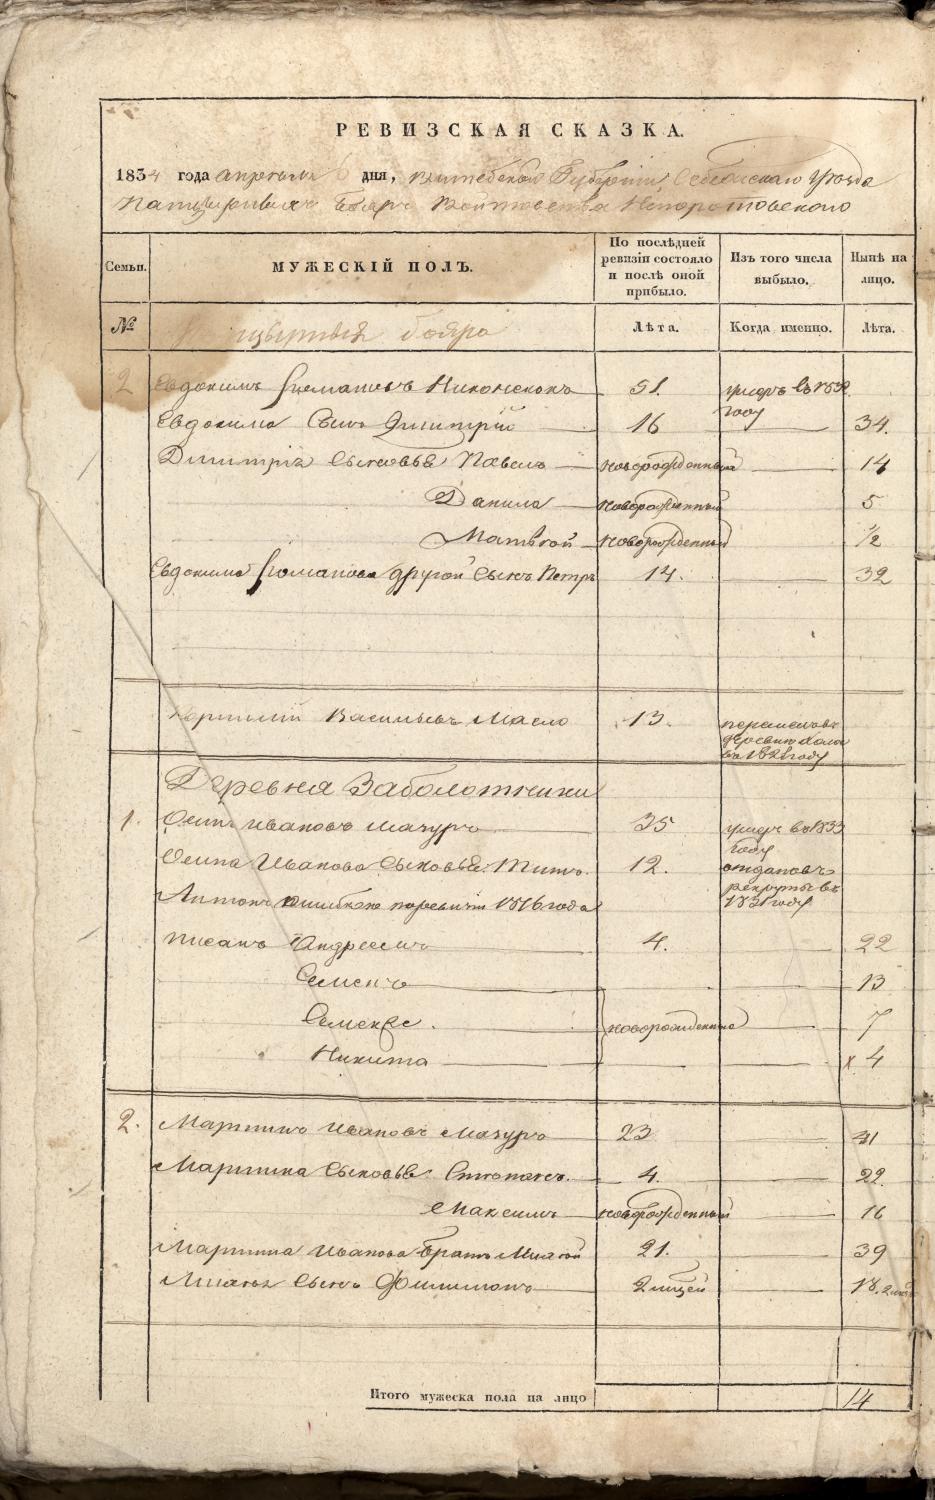 РЕВИЗСКАЯ СКАЗКА.
1834 года апреля 6 дня, Витебской Губернии, Себежского Уезда
Панцырныхъ бояръ Войтовства Непоротовского
Семьи. МУЖЕСКІЙ ПОЛЪ. По послѣдней ревизіи состояло и послѣ оной прибыло. Изъ того числа выбыло. Нынѣ на лицо.
№ Панцырныя бояра Лѣта. Когда именно. Лѣта.
2 Евдокимъ Романовъ 51. умеръ въ 1832 году
Евдокима Сынъ Дмитрій 16 34.
Дмитрія Сыновья Павелъ новорожденный 14
Данила новорожденный 5
Матвей новорожденный 1/2
Евдокима Романова другой Сынъ Петръ 14. 32
Васильевъ Масло 13. въ 1828 году
Деревня Заболотники
1. Осипъ Ивановъ Мазуръ 35 умеръ въ 1833 году
Осипа Иванова Сыновья: Титъ. 12. отдан въ рекруты въ 1831 году
Антонъ ошибкою по ревизіи 1816 года
писанъ Андреемъ 4. 22
Семенъ 13
новорожденные 7
Никита х 4
2. Мартинъ Ивановъ Мазуръ 23 41
Мартина Сыновья: Степанъ. 4. 22.
Максимъ новорожденный 16
Мартина Иванова братъ 21. 39
Сынъ Филимонъ 18.
Итого мужеска пола на лицо 14